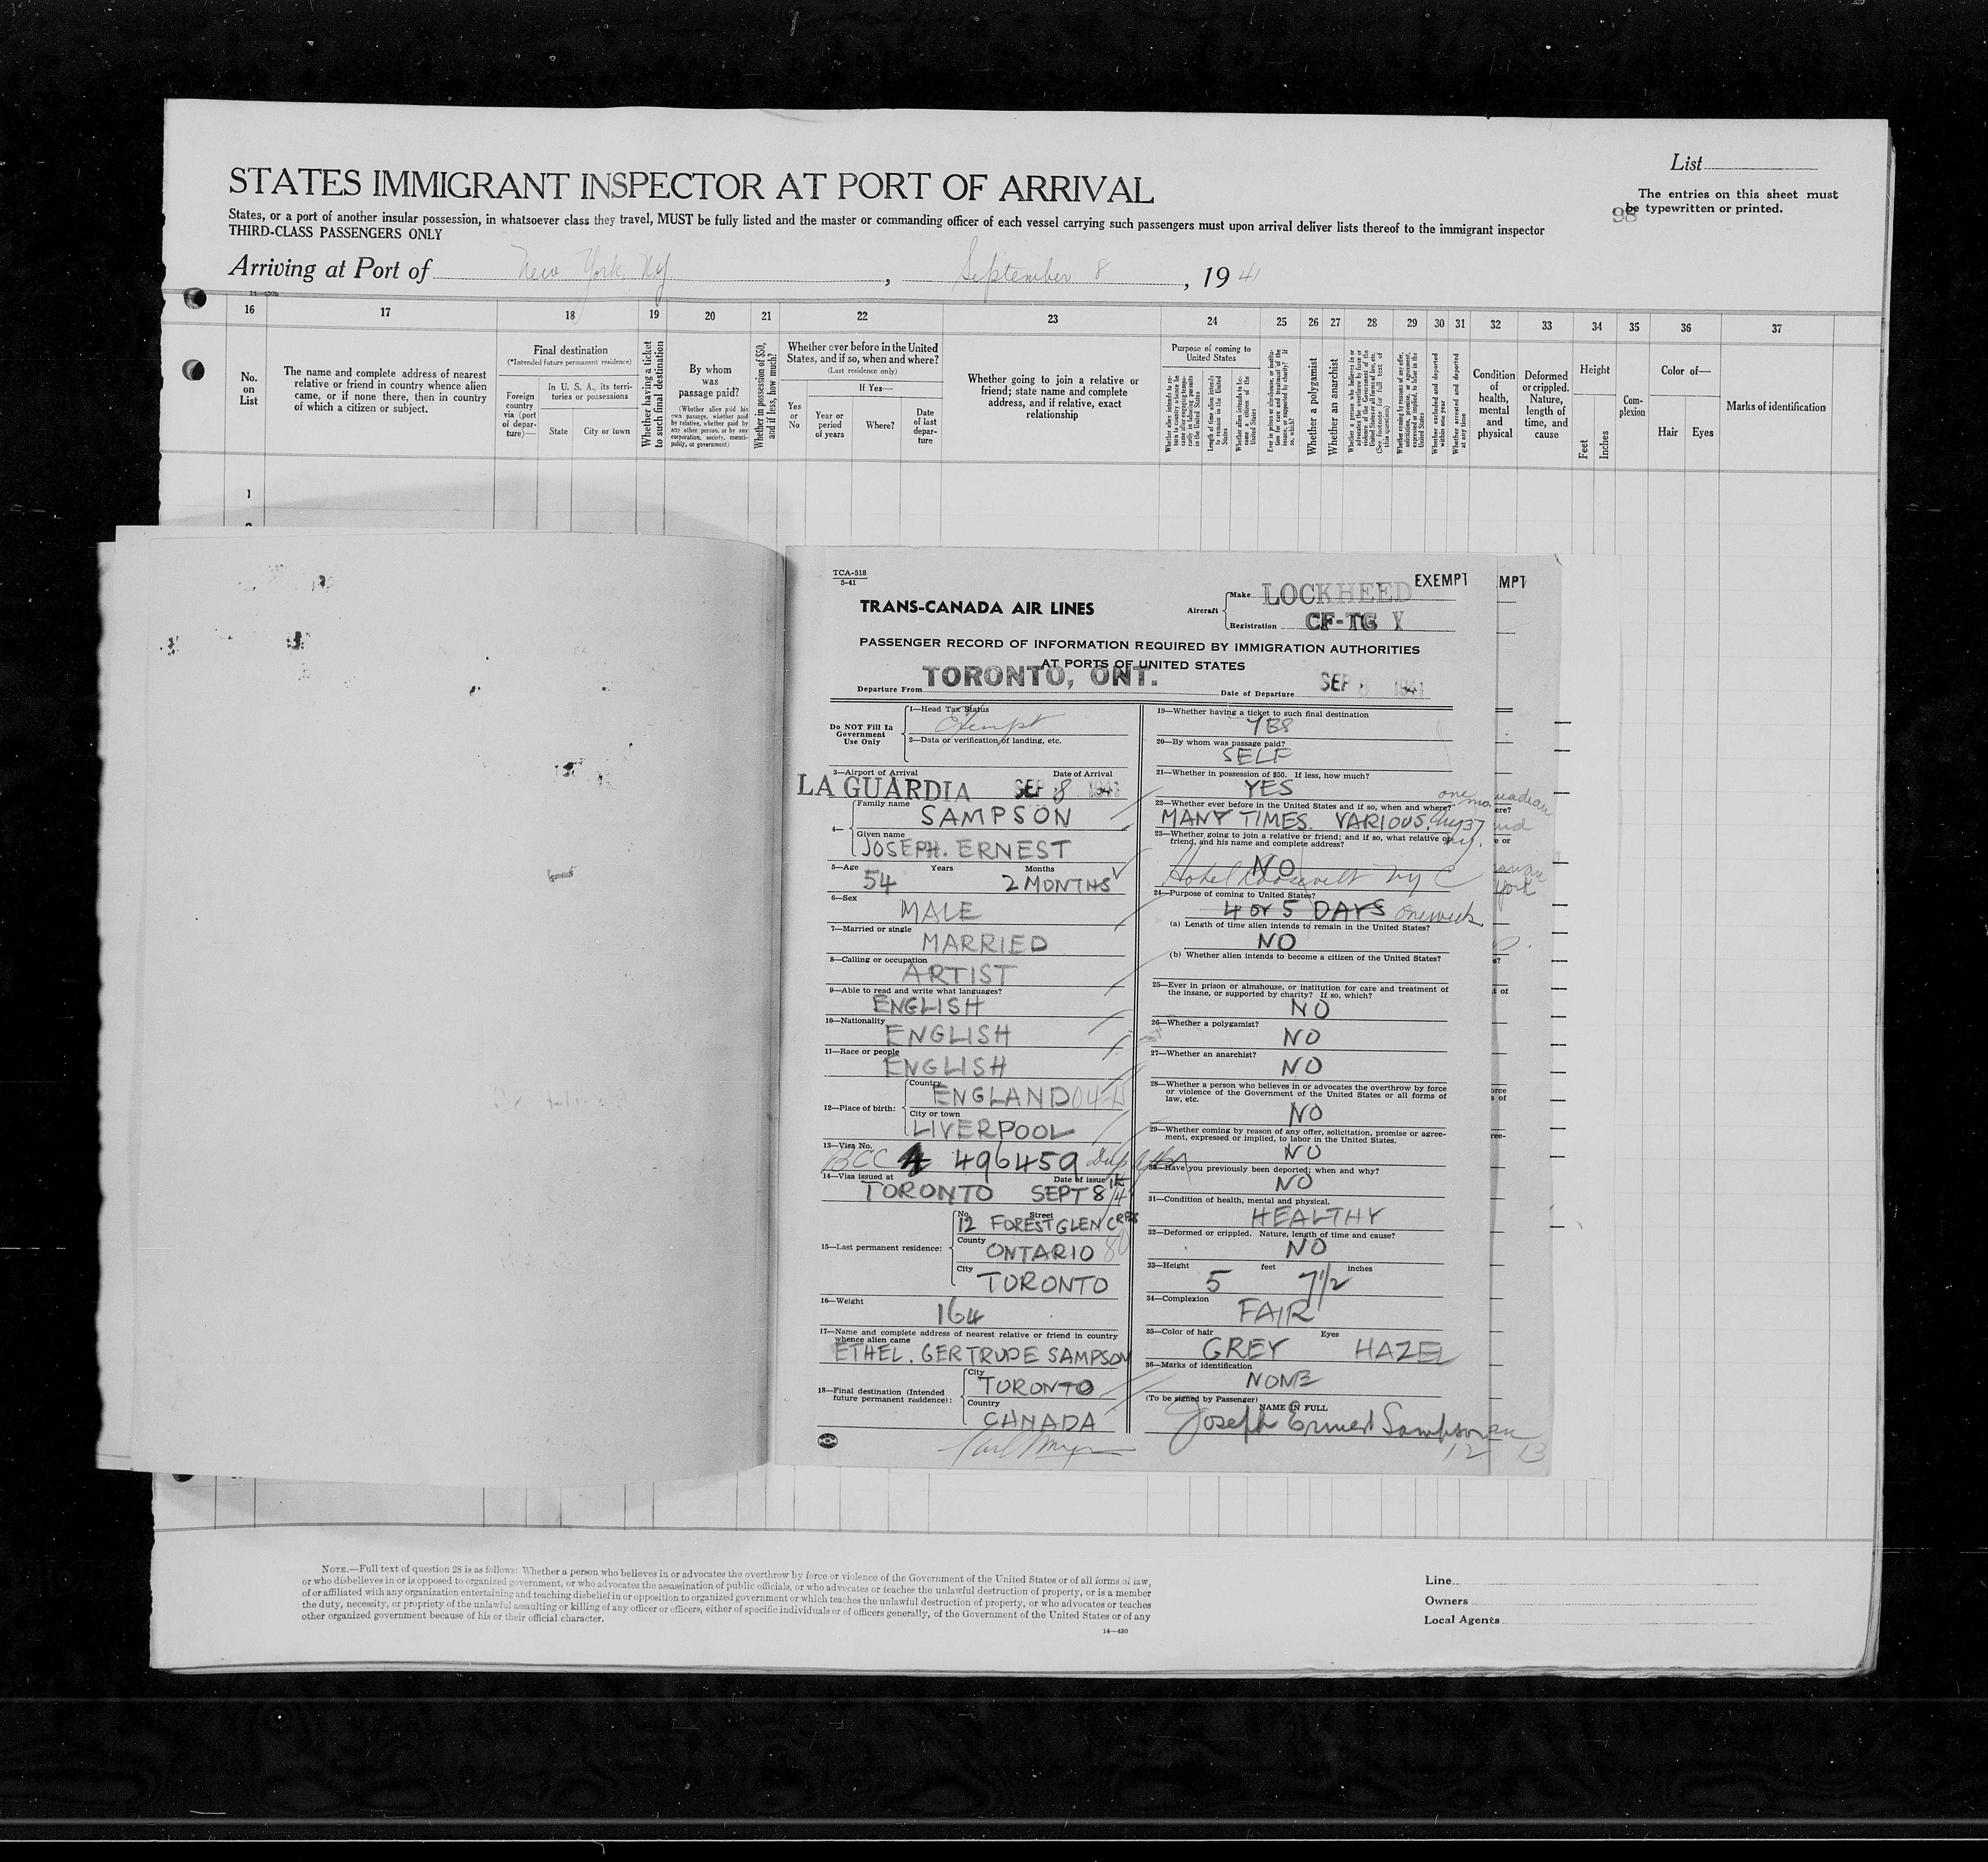 List
STATES IMMIGRANT INSPECTOR AT PORT OF ARRIVAL
The entries on this sheet must
be typewritten or printed.
98
States, or a port of another insular possession, in whatsoever class they travel, MUST be fully listed and the master or commanding officer of each vessel carrying such passengers must upon arrival deliver lists thereof to the immigrant inspector
THIRD-CLASS PASSENGERS ONLY
Arriving at Port of New York, NY, September 8, 1941
14—430b
16 17 18 19 20 21 22 23 24 25 26 27 28 29 30 31 32 33 34 35 36 37
No.
on
List
The name and complete address of nearest
relative or friend in country whence alien
came, or if none there, then in country
of which a citizen or subject.
Final destination
(*Intended future permanent residence)
Foreign
country
via (port
of depar-
ture)—
In U. S. A., its terri-
tories or possessions
State City or town
Whether having a ticket
to such final destination
By whom
was
passage paid?
(Whether alien paid his
own passage, whether paid
by relative, whether paid by
any other person, or by any
corporation, society, munici-
pality, or government)
Whether in possession of $50,
and if less, how much?
Whether ever before in the United
States, and if so, when and where?
(Last residence only)
Yes
or
No
If Yes—
Year or
period
of years
Where?
Date
of last
depar-
ture
Whether going to join a relative or
friend; state name and complete
address, and if relative, exact
relationship
Purpose of coming to
United States
Length of time alien intends
to remain in the United
States
Whether a polygamist
Whether an anarchist
Whether excluded and deported
within one year
Whether arrested and deported
at any time
Condition
of
health,
mental
and
physical
Deformed
or crippled.
Nature,
length of
time, and
cause
Height
Feet
Inches
Com-
plexion
Color of—
Hair Eyes
Marks of identification
1
TCA-518
5-41
TRANS-CANADA AIR LINES
Aircraft
Make LOCKHEED
Registration CF-TC Y
EXEMPT
MPT
PASSENGER RECORD OF INFORMATION REQUIRED BY IMMIGRATION AUTHORITIES
AT PORTS OF UNITED STATES
Departure From TORONTO, ONT.
Date of Departure SEP 8 1941
Do NOT Fill In
Government
Use Only
1—Head Tax Status
Exempt
2—Data or verification of landing, etc.
3—Airport of Arrival Date of Arrival
LA GUARDIA SEP 8 1941
4—
Family name
SAMPSON
Given name
JOSEPH. ERNEST
5—Age Years Months
54 2 MONTHS
6—Sex
MALE
7—Married or single
MARRIED
8—Calling or occupation
ARTIST
9—Able to read and write what languages?
ENGLISH
10—Nationality
ENGLISH
11—Race or people
ENGLISH
12—Place of birth:
Country
ENGLAND
City or town
LIVERPOOL
13—Visa No.
BCC 496459
14—Visa issued at Date of issue
TORONTO SEPT 8/41
15—Last permanent residence:
No. Street
12 FOREST GLEN CRES
County
ONTARIO
City
TORONTO
16—Weight
164
17—Name and complete address of nearest relative or friend in country
whence alien came
ETHEL. GERTRUDE SAMPSON
18—Final destination (Intended
future permanent residence):
City
TORONTO
Country
CANADA
19—Whether having a ticket to such final destination
YES
20—By whom was passage paid?
SELF
21—Whether in possession of $50. If less, how much?
YES
22—Whether ever before in the United States and if so, when and where?
one mo.
MANY TIMES. VARIOUS.
23—Whether going to join a relative or friend; and if so, what relative or
friend, and his name and complete address?
NO
Hotel Roosevelt NY C
24—Purpose of coming to United States?
4 or 5 DAYS one week
(a) Length of time alien intends to remain in the United States?
NO
(b) Whether alien intends to become a citizen of the United States?
25—Ever in prison or almshouse, or institution for care and treatment of
the insane, or supported by charity? If so, which?
NO
26—Whether a polygamist?
NO
27—Whether an anarchist?
NO
28—Whether a person who believes in or advocates the overthrow by force
or violence of the Government of the United States or all forms of
law, etc.
NO
29—Whether coming by reason of any offer, solicitation, promise or agree-
ment, expressed or implied, to labor in the United States.
NO
30—Have you previously been deported; when and why?
NO
31—Condition of health, mental and physical.
HEALTHY
32—Deformed or crippled. Nature, length of time and cause?
NO
33—Height feet inches
5 7 1/2
34—Complexion
FAIR
35—Color of hair Eyes
GREY HAZEL
36—Marks of identification
NONE
(To be signed by Passenger)
NAME IN FULL
Joseph Ernest Sampson
12 13
NOTE.—Full text of question 28 is as follows: Whether a person who believes in or advocates the overthrow by force or violence of the Government of the United States or of all forms of law,
or who disbelieves in or is opposed to organized government, or who advocates the assassination of public officials, or who advocates or teaches the unlawful destruction of property, or is a member
of or affiliated with any organization entertaining and teaching disbelief in or opposition to organized government or which teaches the unlawful destruction of property, or who advocates or teaches
the duty, necessity, or propriety of the unlawful assaulting or killing of any officer or officers, either of specific individuals or of officers generally, of the Government of the United States or of any
other organized government because of his or their official character.
14—430
Line
Owners
Local Agents